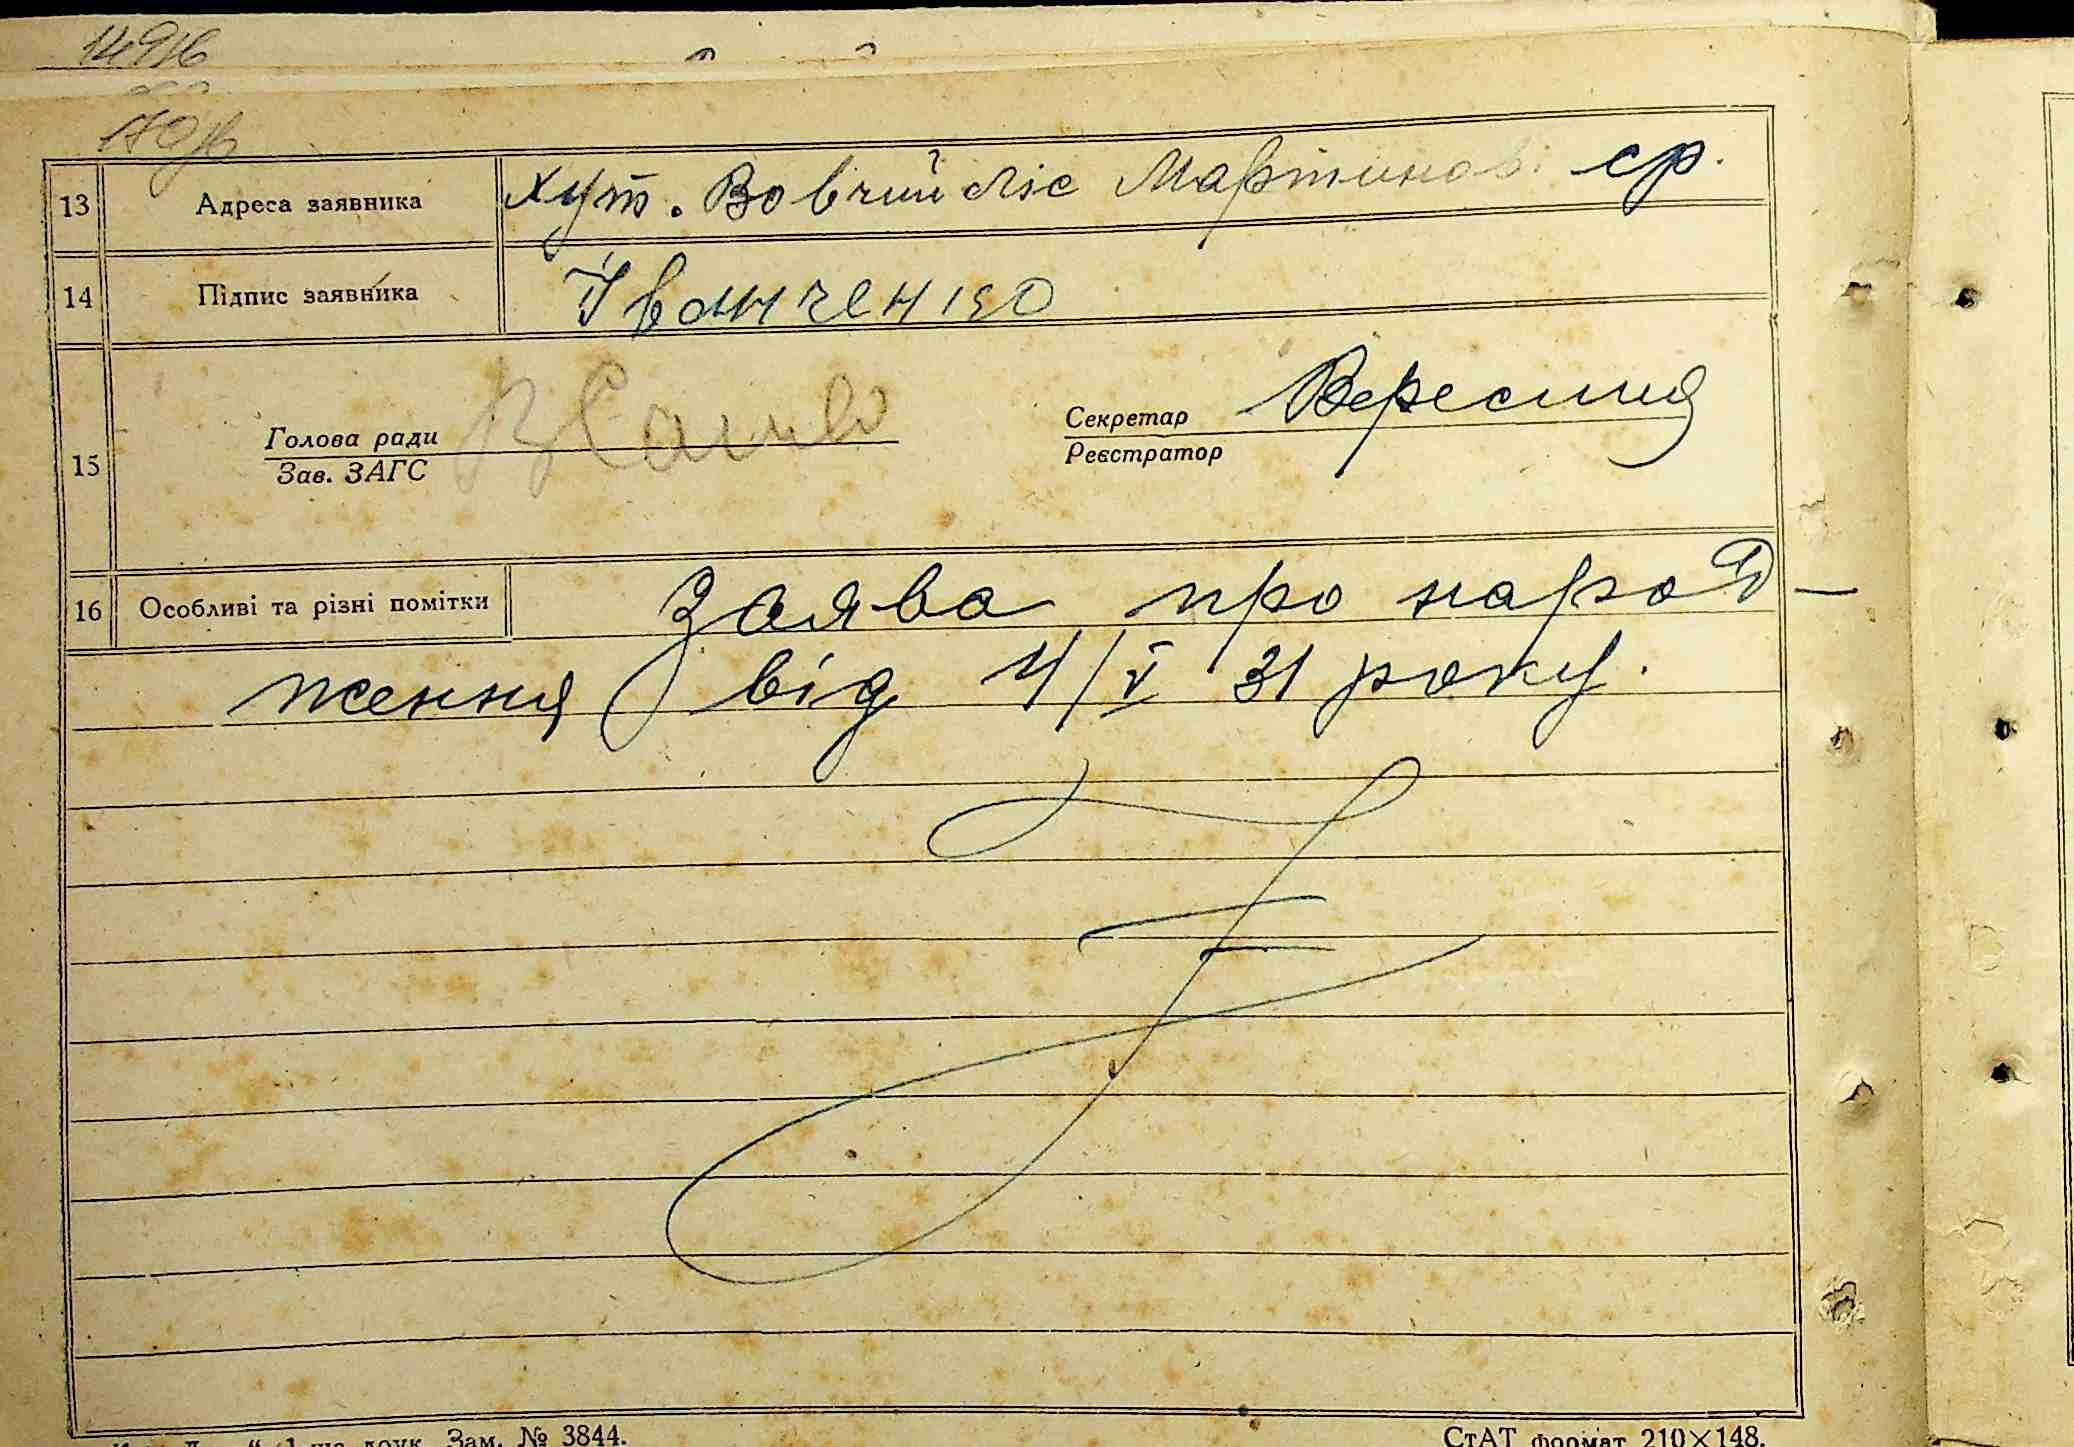 13 Адреса заявника Хут. Вовчий ліс Мартинов. ср.
14 Підпис заявника Іванченко
15 Голова ради
Зав. ЗАГС
Секретар
Реєстратор
16 Особливі та різні помітки Заява про народ-
ження від 4/V 31 року.
1-ша друк. Зам. № 3844.
СтАТ формат 210×148.